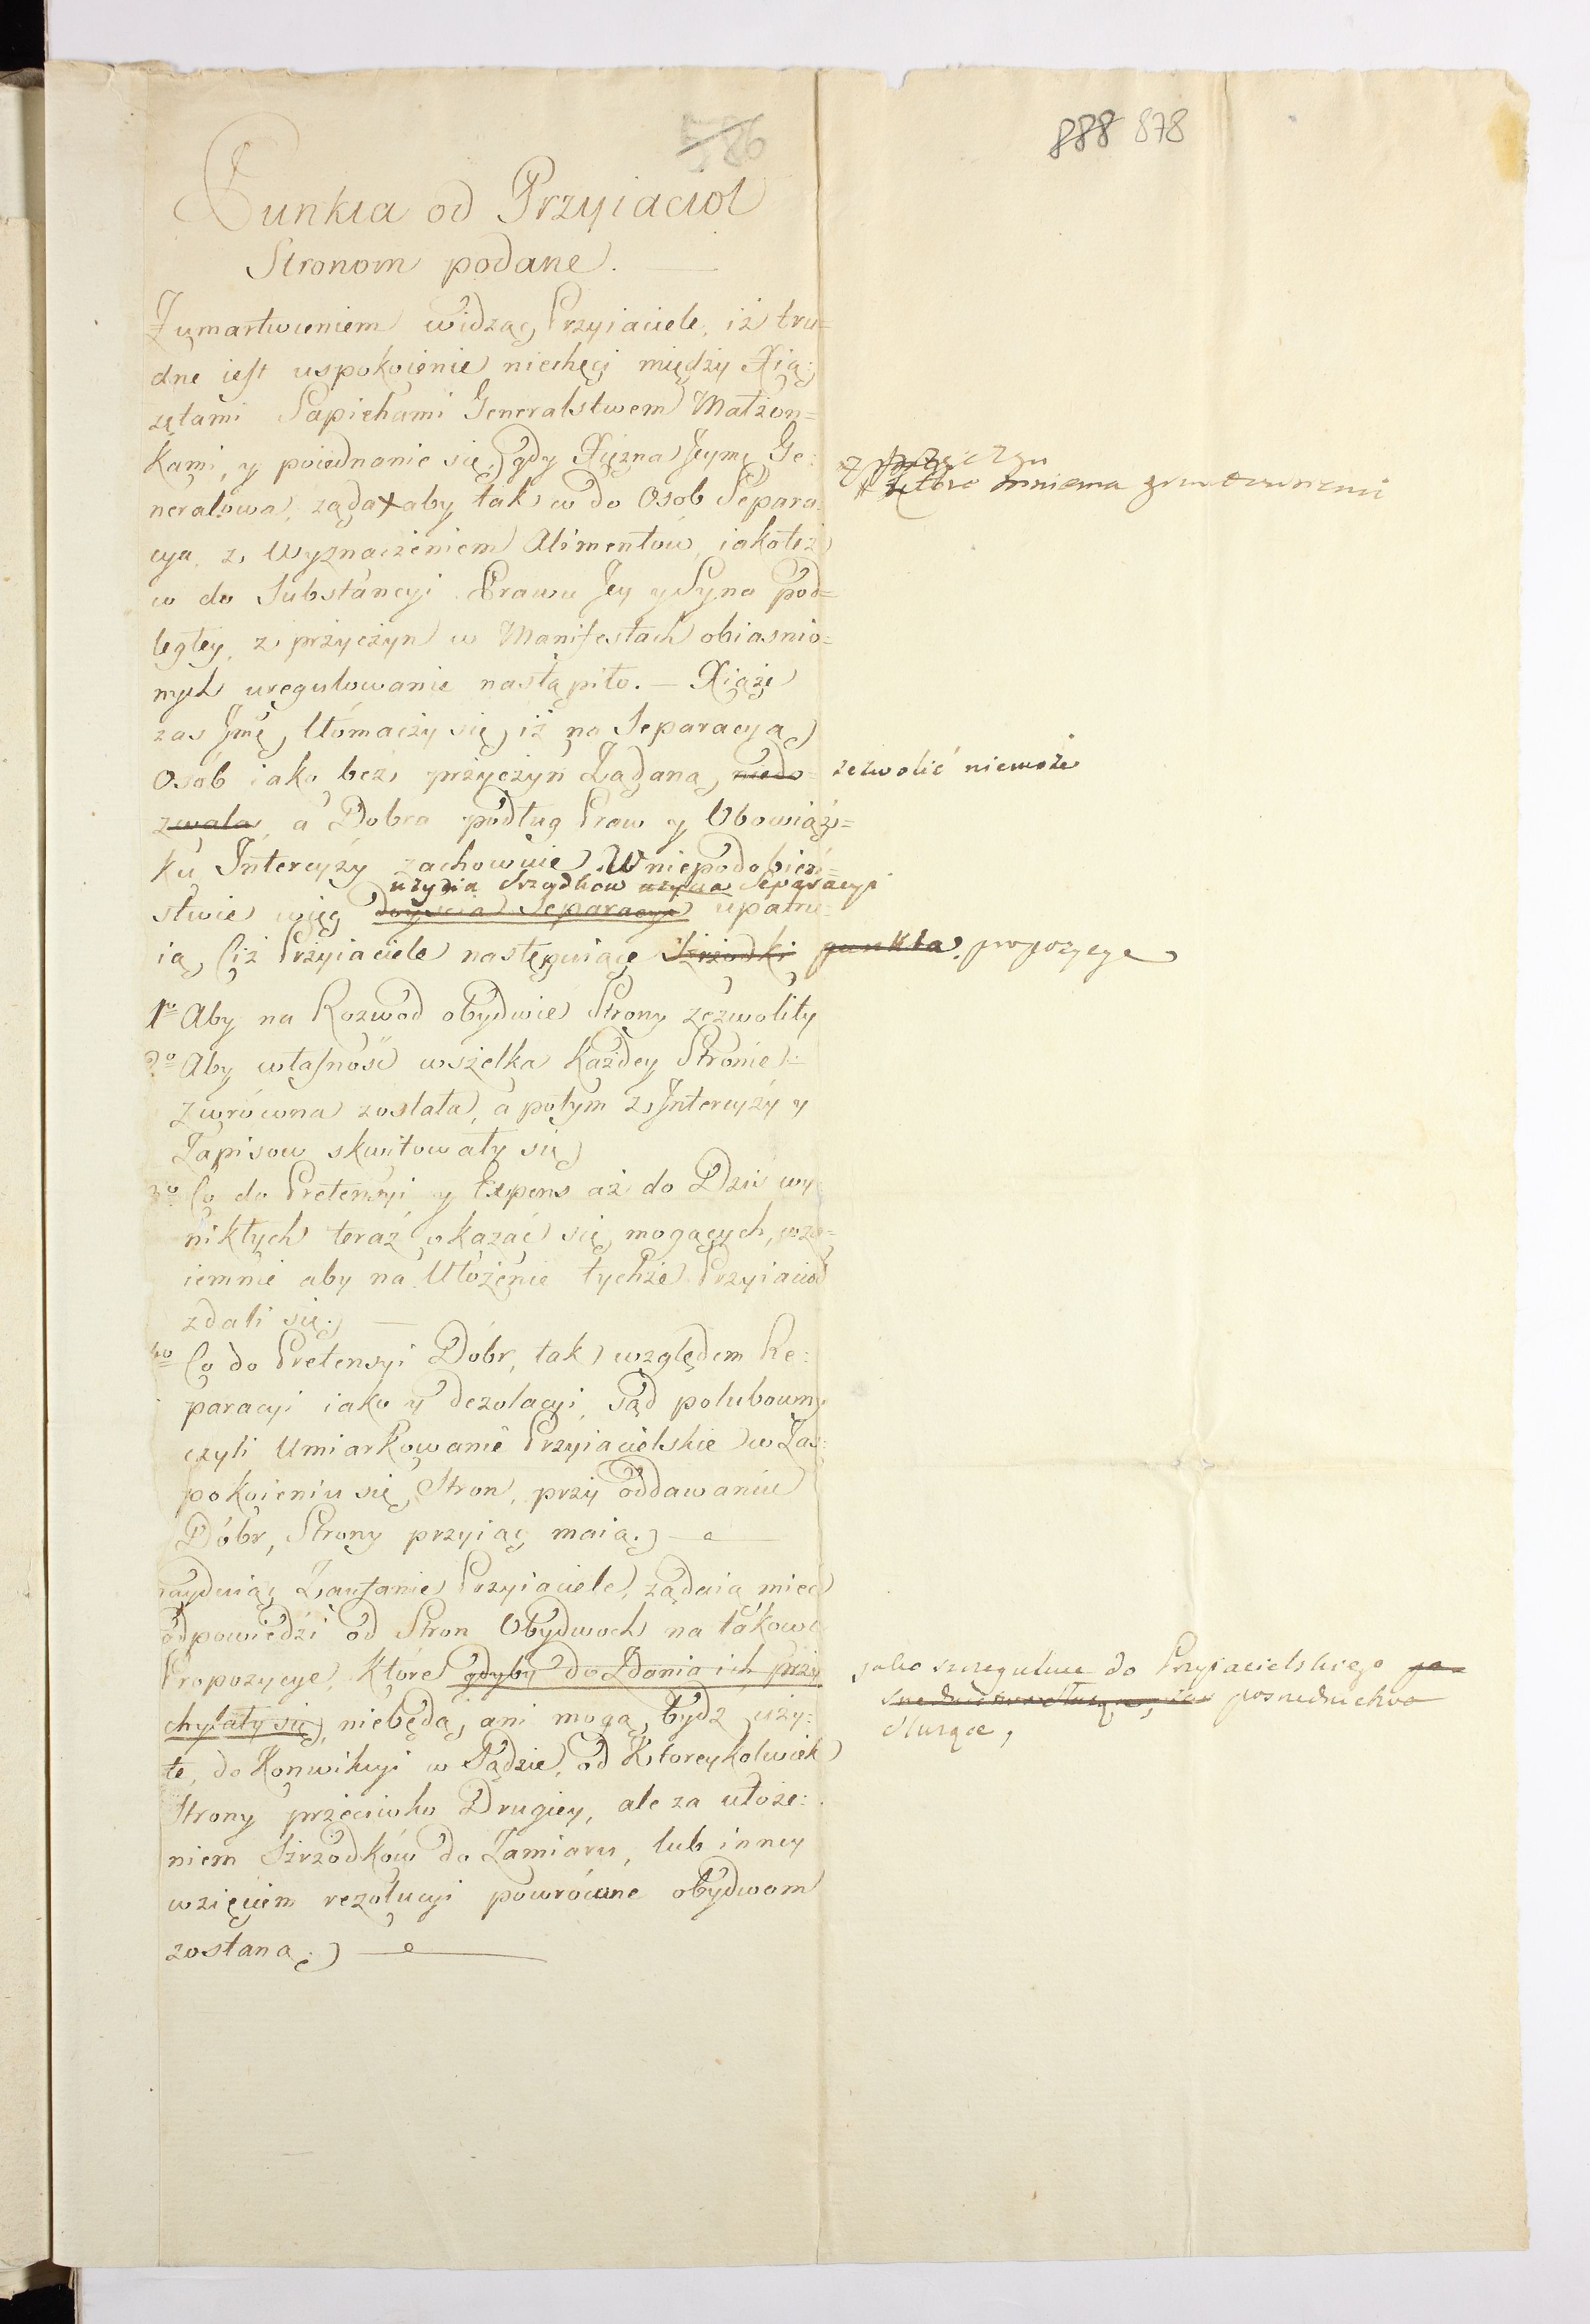 586
888 878
Punkta od Przyiaciol
Stronom podane. —
Z umartwieniem widząc Przyiaciele, iż tru=
dne iest uspokoienie niechęci między Xią:
zętami Sapiehami Generalstwem Małżon=
kami, y poiednanie się, gdy Xięzna Jeymć Ge:
neralowa, ząda + aby tak co do Osob Separa:
z przyczyn
+ które mniema gruntownemi
cya z Wyznaczeniem Alimentow, iakotez
co do Substancyi Prawu Jey y Syna pod=
ległey, z przyczyn w Manifestach obiasnio=
nych uregulowanie nastąpiło. — Xiąże
zas Jmć, tłomaczy się, iż na Separacyą
Osób iako bez przyczyn Ządaną, niedo= zezwolić niemoże
zwala, a Dobra podług Praw y Obowiąz=
ku Intercyzy zachowuie. W niepodobień=
użycia srzodkow użycia Separacyi
stwie więc doyscia Separacyi upatru=
ią, iż Przyiaciele następuiące Srzodki punkta. propozycye
1mo Aby na Rozwod obydwie Strony zezwoliły
2o Aby własność wszelka Każdey Stronie
zwrócona została, a potym z Intercyzy y
Zapisow skwitowały się
3o Co do Pretensyi y Expens aż do Dziś wy
nikłych teraz okazać się mogących, wza=
iemnie aby na Ułożenie tychże Przyiacioł
zdali się. —
4o Co do Pretensyi Dóbr, tak względem Re:
paracyi iako y dezolacyi, sąd polubowny
czyli Umiarkowanie Przyiacielskie w Zas:
pokoieniu się Stron, przy oddawaniu
Dóbr, Strony przyiąć maią. —
Zaufanie Przyiaciele, żądaią mieć
odpowiedzi od Stron Obydwoch na takowe
Propozycye, Które gdyby do Zdania ich przy
iako szczegulnie do Przyiacielskiego po=
chylały się, niebędą, ani mogą bydź uży:
srednictwa służące, posrednictwa
służące,
te, do Konwikcyi w Sądzie, od Ktoreykolwiek
Strony przeciwko Drugiey, ale za ułoże:
niem Srzodków do Zamiaru, lub inney
wzięciem rezolucyi powrócone obydwom
zostaną. —